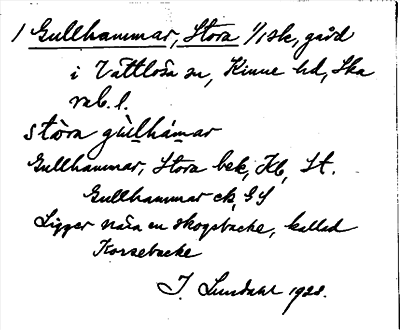 1 Gullhammar, Stora 1/1 sk, gård
i Vättlösa sn, Kinne hd, Ska
rab. l.
stora gùlhámar
Gullhammar, Stora bek, Kb, St.
Gullhammar ek, GS
Ligger nära en skogsbacke, kallad
Korsebacke
J. Lundahl 1928.